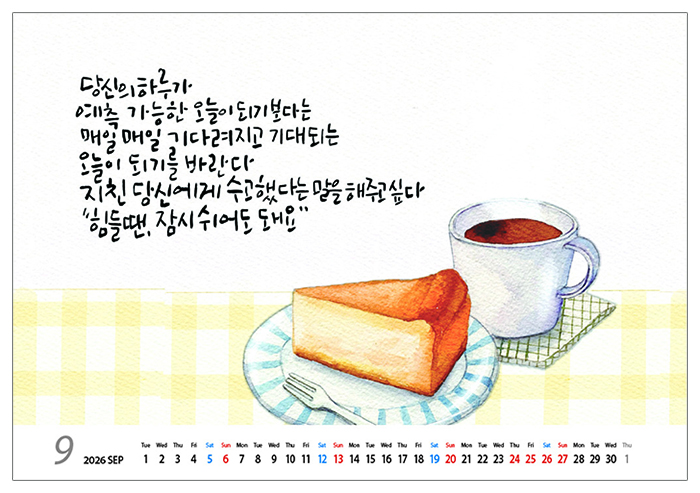 당신의 하루가
예측 가능한 오늘이 되기보다는
매일매일 기다려지고 기대되는
오늘이 되기를 바란다
지친 당신에게 수고했다는 말을 해주고싶다
"힘들땐, 잠시 쉬어도 돼요"
9 2026 SEP
Tue Wed Thu Fri Sat Sun Mon Tue Wed Thu Fri Sat Sun Mon Tue Wed Thu Fri Sat Sun Mon Tue Wed Thu Fri Sat Sun Mon Tue Wed Thu
1 2 3 4 5 6 7 8 9 10 11 12 13 14 15 16 17 18 19 20 21 22 23 24 25 26 27 28 29 30 1